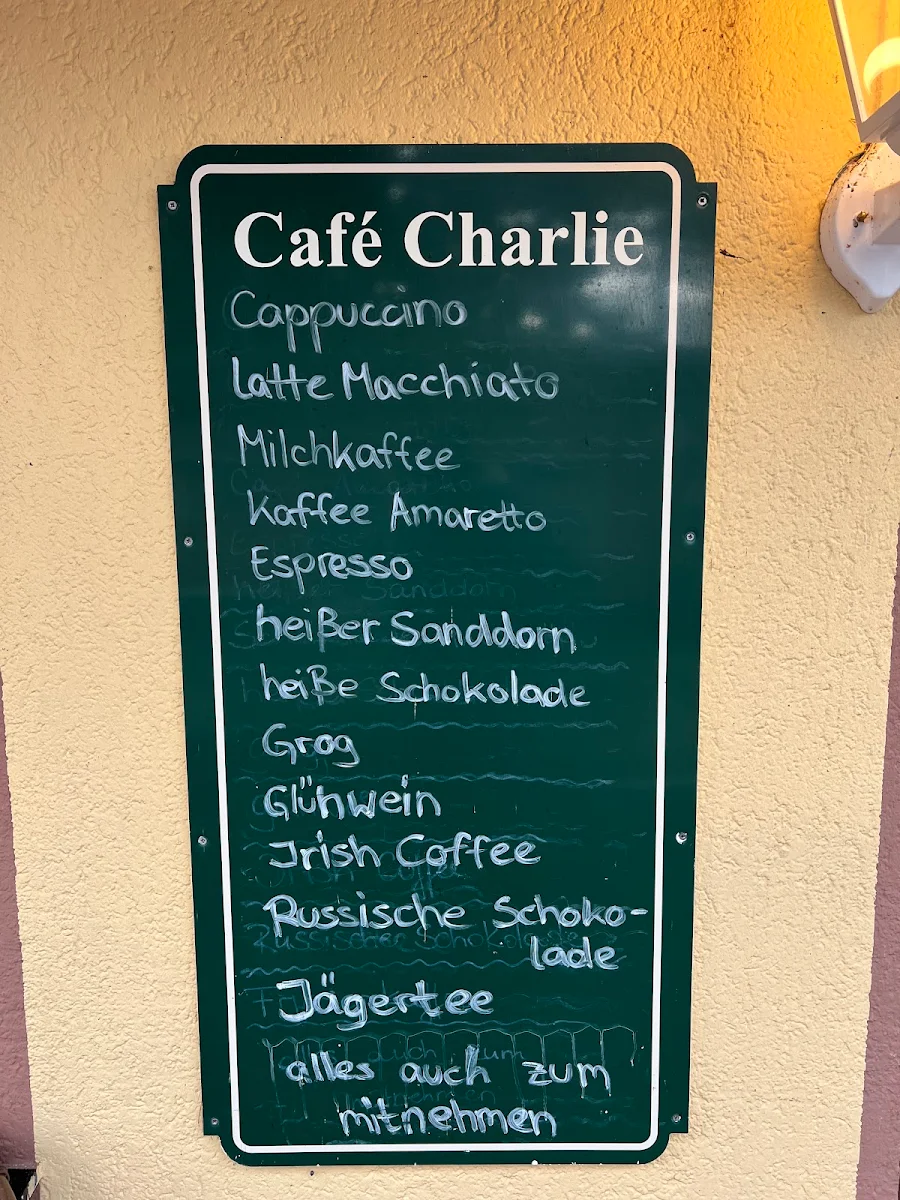 Café Charlie
Cappuccino
Latte Macchiato
Milchkaffee
Kaffee Amaretto
Espresso
heißer Sanddorn
heiße Schokolade
Grog
Glühwein
Irish Coffee
Russische Schoko-
lade
Jägertee
alles auch zum
mitnehmen